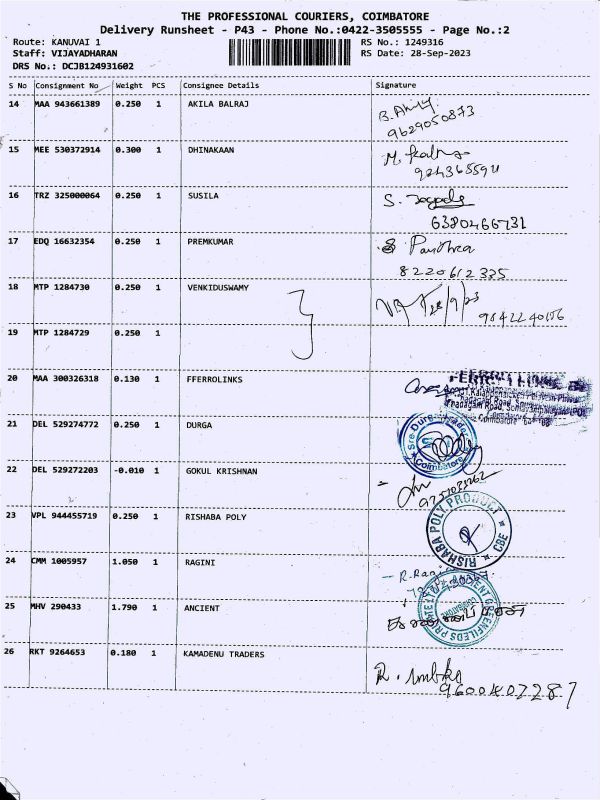 THE PROFESSIONAL COURIERS, COIMBATORE
Delivery Runsheet - P43 - Phone No.:0422-3505555 - Page No.:2
Route: KANUVAI 1 RS No.: 1249316
Staff: VIJAYADHARAN RS Date: 28-Sep-2023
DRS No.: DCJB124931602
S No Consignment No Weight PCS Consignee Details Signature
14 MAA 943661389 0.250 1 AKILA BALRAJ
9629050873
15 MEE 530372914 0.300 1 DHINAKAAN
16 TRZ 325000064 0.250 1 SUSILA S.
6380466731
17 EDQ 16632354 0.250 1 PREMKUMAR
8220612335
18 MTP 1284730 0.250 1 VENKIDUSWAMY 28/9/23
19 MTP 1284729 0.250 1
20 MAA 300326318 0.130 1 FFERROLINKS
21 DEL 529274772 0.250 1 DURGA Sree Durga Coimbatore
22 DEL 529272203 -0.010 1 GOKUL KRISHNAN
23 VPL 944455719 0.250 1 RISHABA POLY RISHABA POLY PRODUCT CBE
24 CMM 1005957 1.050 1 RAGINI
25 MHV 290433 1.790 1 ANCIENT ANCIENT GREENFIELDS PRIVATE COIMBATORE
26 RKT 9264653 0.180 1 KAMADENU TRADERS R.
9600407287